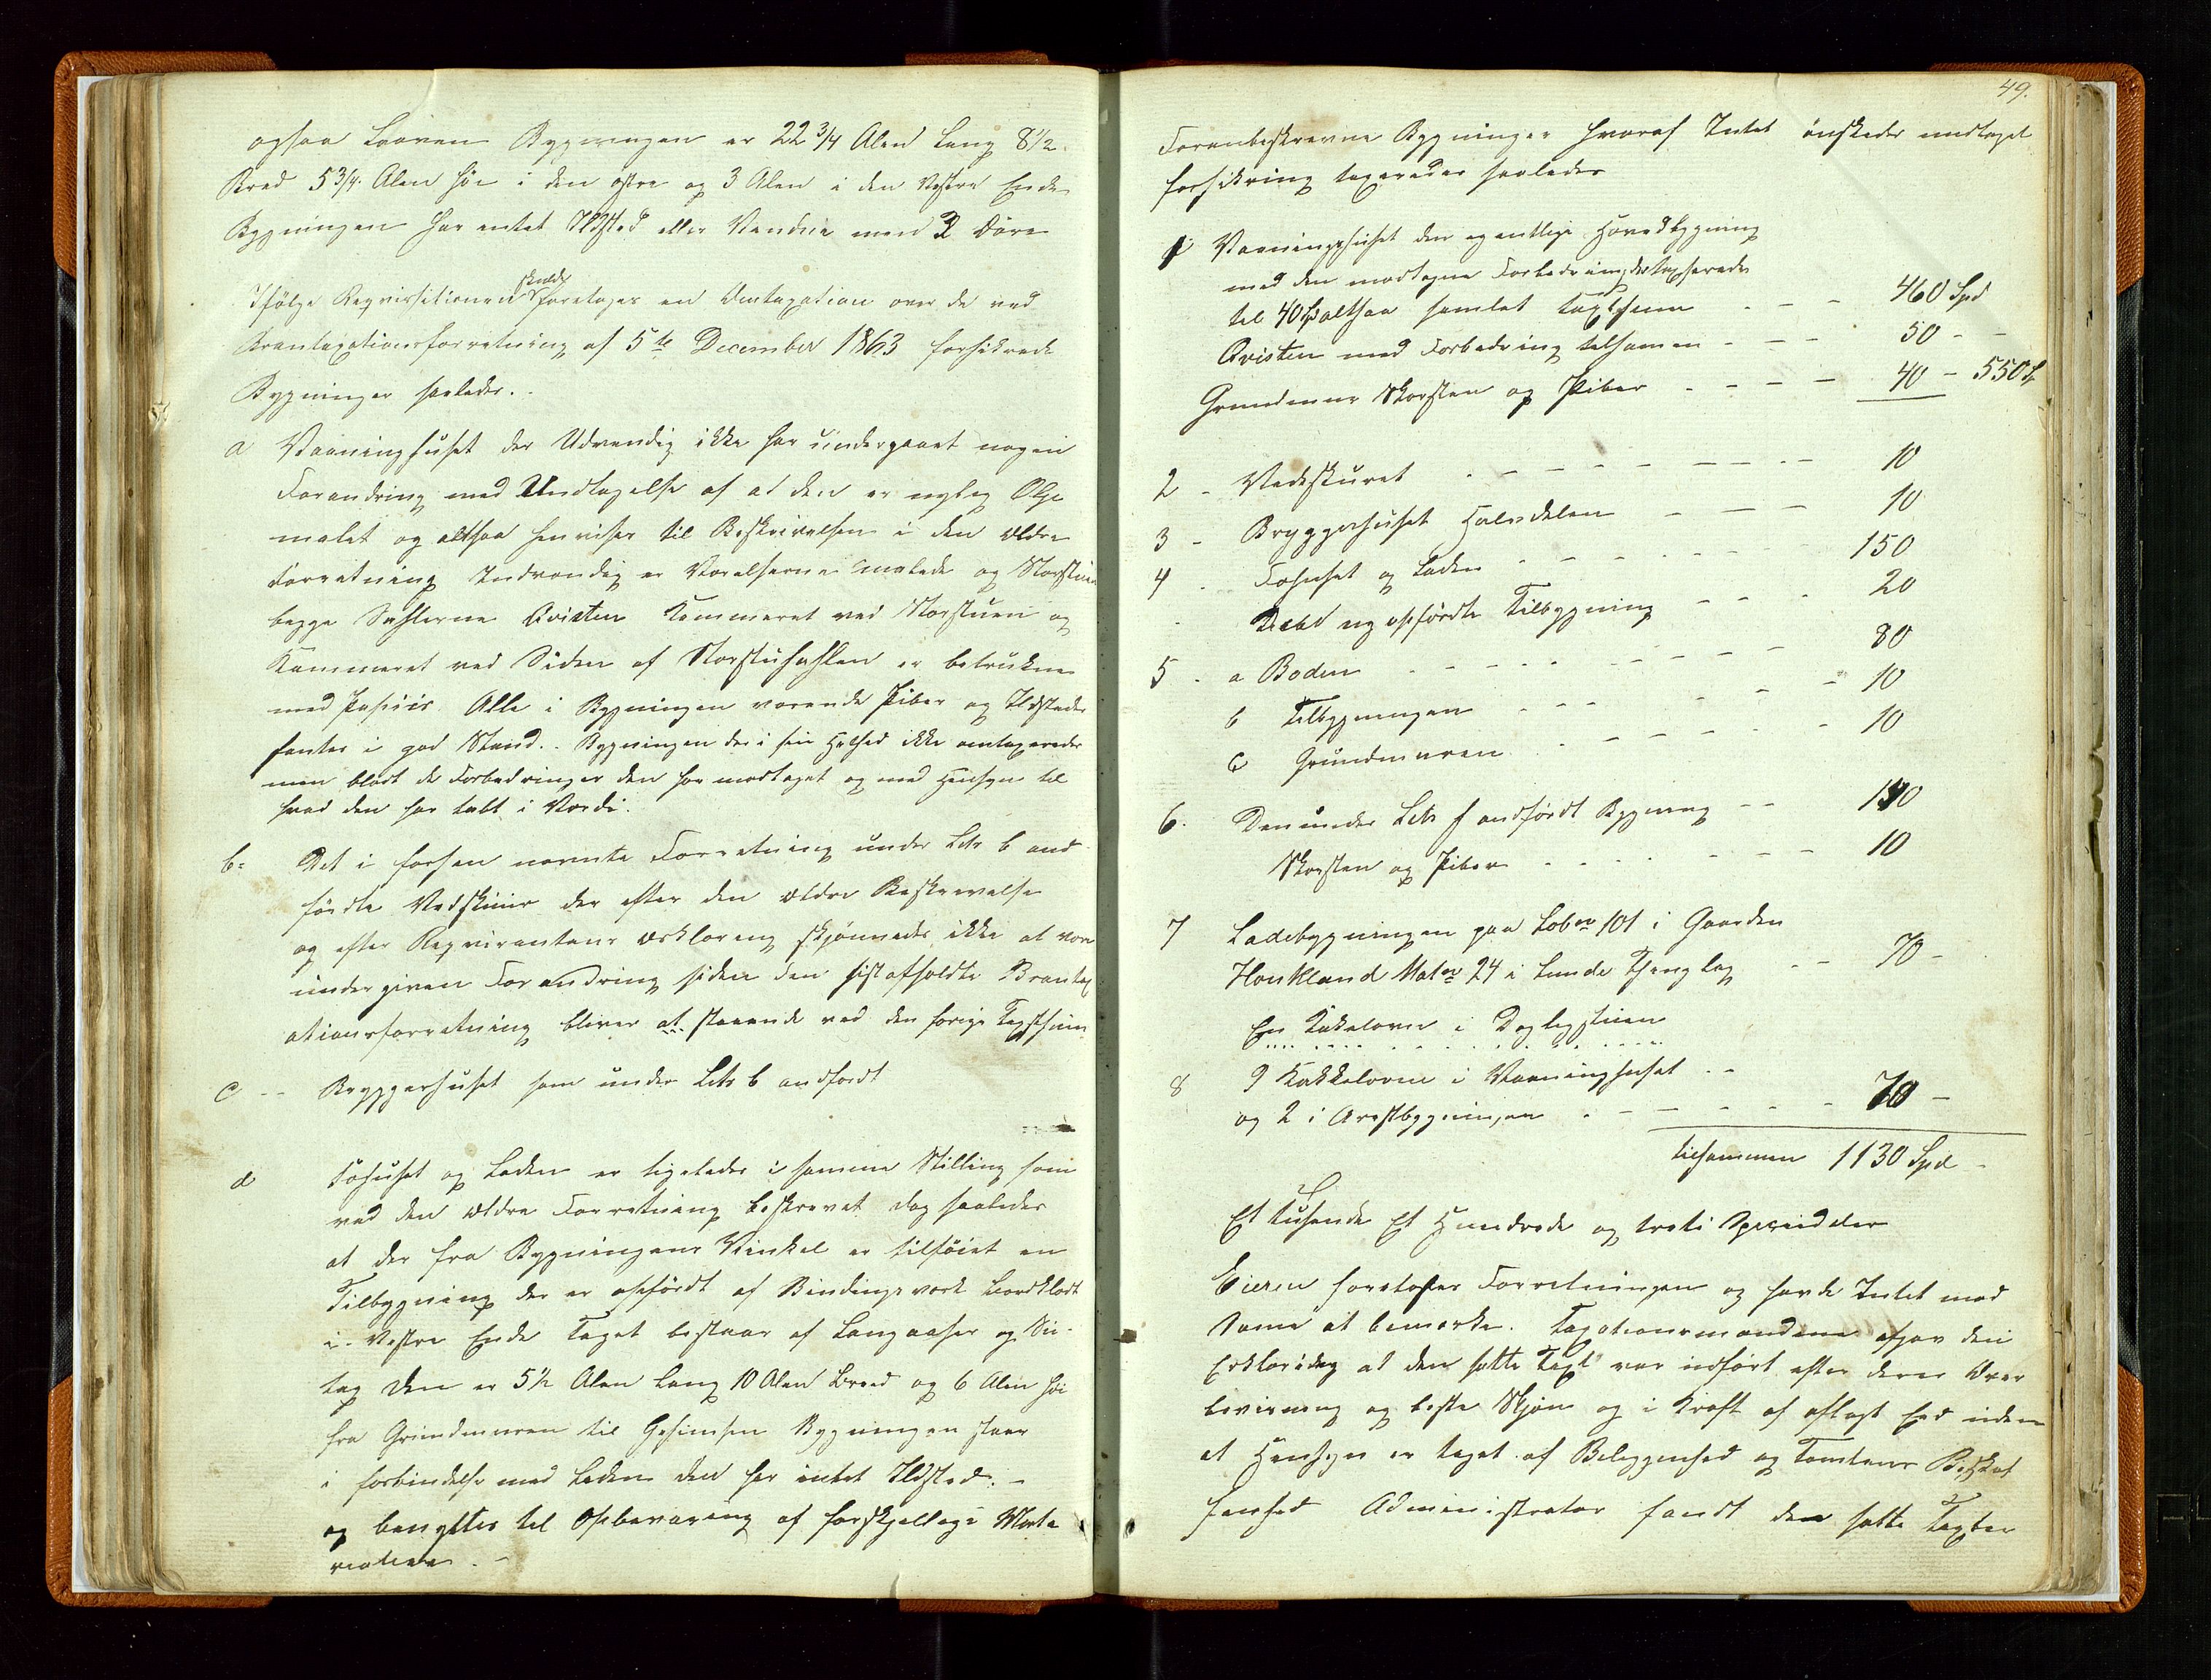 ogsaa Laaven Bygningen er 22 3/4 Alen Lang 8 1/2
Bred 5 3/4 Alen høi i den østre og 3 Alen i den Vestre Ende
Bygningen har intet Ildsted eller Vindue med 2 Døre
Ifølge Reqvisitionen skulde foretages en Omtaxation over de ved
Brantaxationsforretning af 5te December 1863 forsikrede
Bygninger saaledes.
a Vaaninghuset der Udvendig ikke har undergaaet nogen
Forandring med Undtagelse af at den er nylig Olje
malet og altsaa henvises til Beskrivelsen i den ældre
Forretning Indvendig er Værelserne malede og Storstuen
begge Sahlerne Qvisten Kammeret ved Storstuen og
Kammeret ved Siden af Storstusahlen er betrukne
med Papiir. Alle i Bygningen værende Piber og Ildsteder
fantes i god Stand. Bygningen der i sin Helhed ikke omtaxeredes
men blodt de Forbedringer den har modtaget og med Hensyn til
hvad den har tabt i Værdi.
b: Det i forhen nævnte Forretning under Litr b and
førdte Vedskuur der efter den ældre Beskrivelse
og efter Reqvirentens Erklæring skjønnedes ikke at være
undergiven Forandring siden den sist afholdte Brantax
ationsforretning bliver at staaende ved den forige Taxtsum
c -- Bryggerhuset som under Litr b andfordt
d Føhuset og Laden er ligeledes i samme Stilling som
ved den ældre Forretning beskrevet dog saaledes
at der fra Bygningens Vinkel er tilføiet en
Tilbygning der er opfördt af Bindingsværk Bordklædt
i Vestre Ende Taget bestaar af Langaaser og Su-
tag Den er 5 1/2 Alen Lang 10 Alen Breed og 6 Alen høi
fra Grundmuren til Gesimsen Bygningen staar
i forbindelse med Laden den har intet Ildsted. -
og benyttes til Opbevaring af forskjellige Mate
rialier. -
49.
Foranbeskrevne Bygninger hvoraf Intet ønskedes undtaget
forsikring taxeredes saaledes
1 Vaaningshuset den egentlige Hovedbygning
med den modtagne Forbedring der taxseredes
til 40 Spd altsaa samlet Taxtsum - - - 460 Spd
Qvisten med Forbedring tilsamen - - - 50 - -
Grundmur Skorsten og Piber - - - - 40 - 550 S
2 - Vedskuret - - - - - - - - 10
3 - Bryggerhuset Halvdelen - - - 10
4 - Føhuset og Laden - - - - - - 150
Dets ny opførdte Tilbygning - - - 20
5 - a Boden - - - - - - - - 80
b Tilbygningen - - - - - - 10
c Grundmuren - - - - - - 10
6. Den under Litr f andførdt Bygning -- 140
Skorsten og Piber - - - - - - - 10
7 Ladebygningen paa Løbno 101 i Gaarden
Haukland Matno 24 i Lunde Thinglag - - 70 -
En Kakelovn i Dagligstuen
8 9 Kakkelovne i Vaaninghuset - -
og 2 i Arestbygningen - - - - - - 70 -
tilsammen 1130 Spd -
Et Tusende Et Hundrede og treti Speciedaler
Eieren foretoges Forretningen og havde Intet mod
Samme at bemærke. Taxationsmændene afgav den
Erklæring at den satte Taxt var udført efter deres Over
bevisning og beste Skjøn og i Kraft af aflagt Eed uden
at Hensyn er taget af Beliggenhed og Tomtens Beskaf
fenhed Administrator fandt den satte Taxter